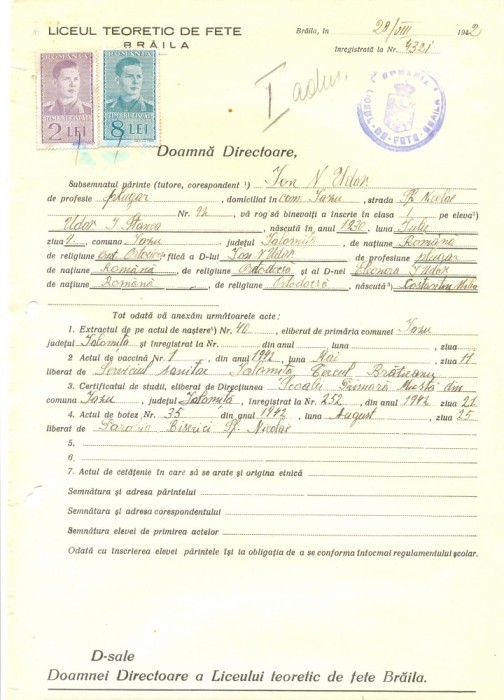 LICEUL TEORETIC DE FETE
BRĂILA
Brăila, în 29/VIII 1942
înregistrată la Nr. 4321
ROMANIA
2 LEI
ROMANIA
8 LEI
I
ROMANIA
LICEUL-DE-FETE-BRAILA
Doamnă Directoare,
Subsemnatul părinte (tutore, corespondent ¹) Ion N Udor
de profesie plugar, domiciliat în com. Iazu, strada Sf. Nicolae
Nr. 92, vă rog să binevoiți a înscrie în clasa I pe eleva²)
Udor I Stanca, născută în anul 1930, luna Iulie
ziua, comuna Iazu, județul Ialomița, de națiune Română
de religiune Ortodoxă fiică a D-lui Ion N Udor de profesiune plugar
de națiune Română, de religiune Ortodoxă și al D-nei Eleonora I Udor
de națiune Română, de religiune Ortodoxă, născută³) Constantin
Tot odată vă anexăm următoarele acte:
1. Extractul de pe actul de naștere⁴) Nr. 40, eliberat de primăria comunei Iazu
județul Ialomița și înregistrat la Nr. din anul luna ziua
2 Actul de vaccină Nr. 1 din anul 1942, luna Mai, ziua 11
liberat de Serviciul sanitar Ialomița Cercul Brătieanu
3. Certificatul de studii, eliberat de Direcțiunea Școalei Primară Mixtă din
comuna Iazu, județul Ialomița, înregistrat la Nr. 252, din anul 1942 ziua 22
4. Actul de botez Nr. 35 din anul 1942, luna August, ziua 25
liberat de Parohia Biserici Sf. Nicolae
5.
6.
7. Actul de cetățenie în care să se arate și origina etnică
Semnătura și adresa părintelui
Semnătura și adresa corespondentului
Semnătura elevei de primirea actelor
Odată cu înscrierea elevei părintele își ia obligația de a se conforma întocmai regulamentului școlar.
D-sale
Doamnei Directoare a Liceului teoretic de fete Brăila.